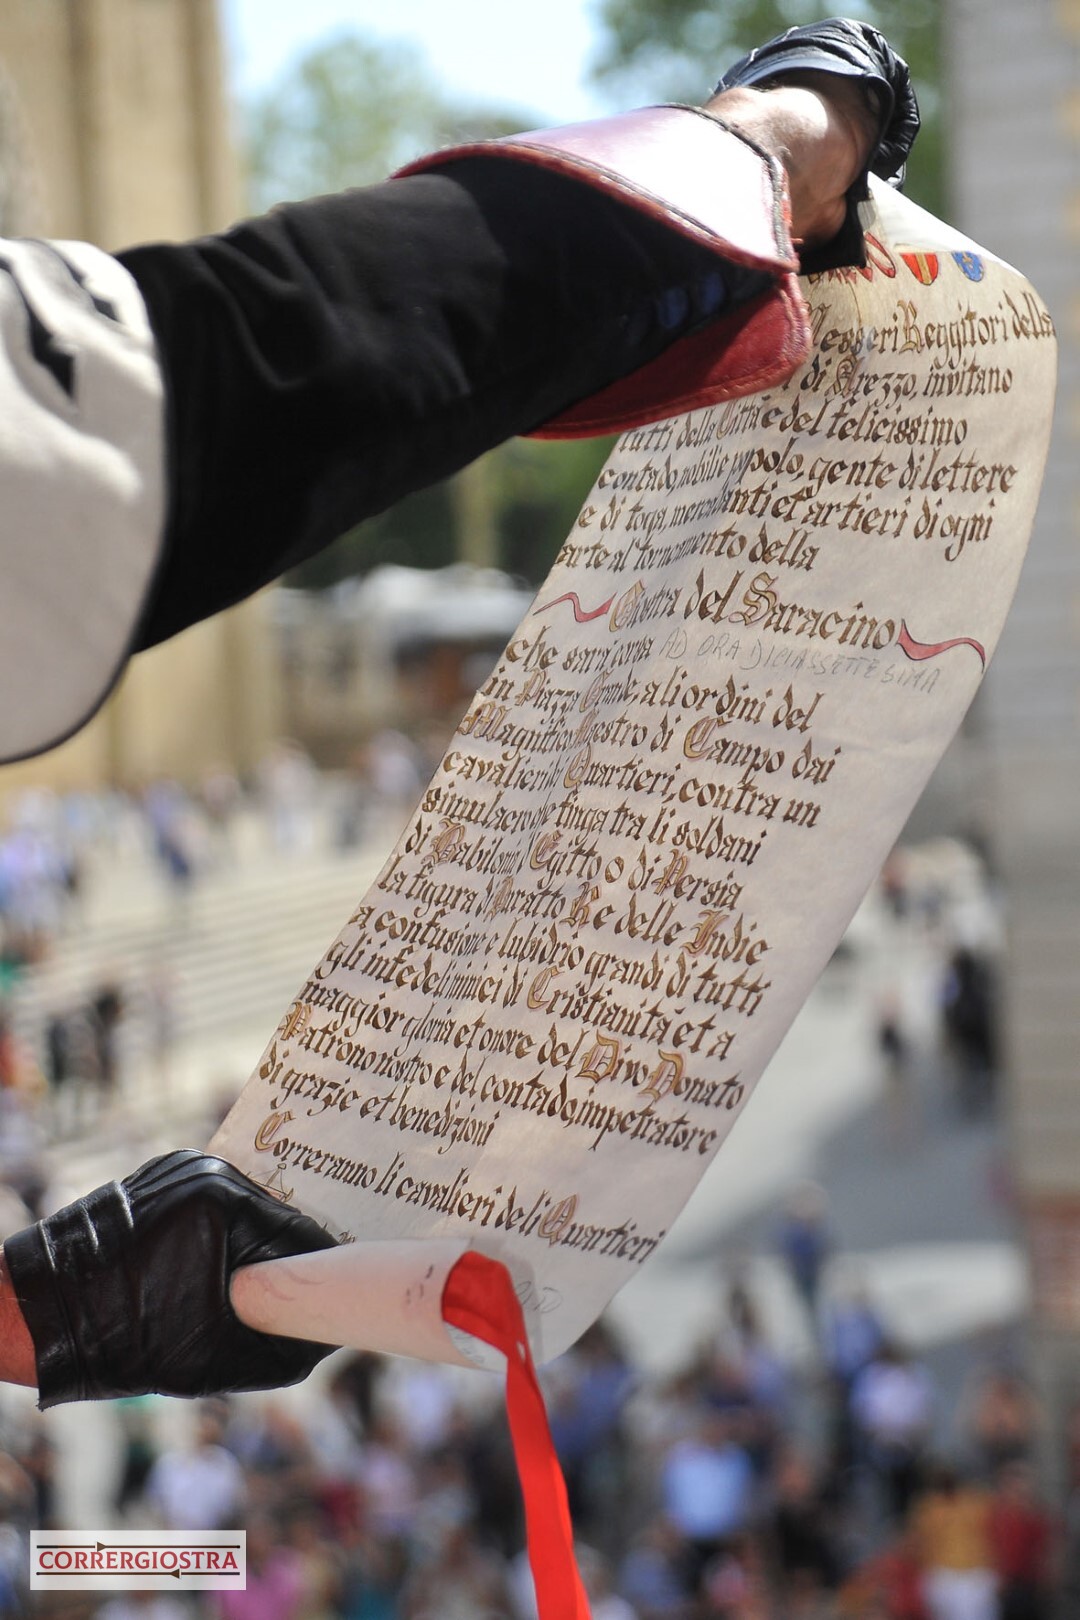 Messeri Reggitori della
di Arezzo, invitano
tutti della Città e del felicissimo
contado, nobili e popolo, gente di lettere
e di toga, mercatanti et artieri di ogni
arte al torneamento della
Giostra del Saracino
che sarà corsa AD ORA DICIASSETTESIMA
in Piazza Grande, a li ordini del
Magnifico Maestro di Campo dai
cavalieri di Quartieri, contra un
simulacro che finga tra li soldani
di Babilonia d'Egitto o di Persia
la figura di Buratto Re delle Indie
a confusione e lubidrio grandi di tutti
gli infedeli inimici di Cristianità et a
maggior gloria et onore del Divo Donato
Patrono nostro e del contado, impetratore
di grazie et benedizioni
Correranno li cavalieri de li Quartieri
CORRERGIOSTRA